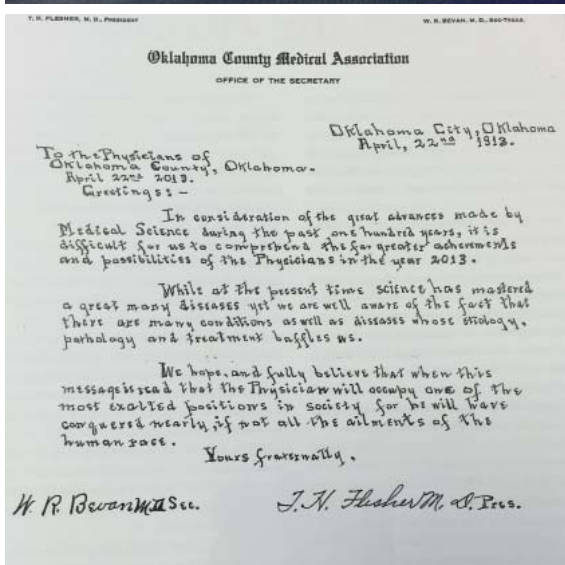 T. H. FLESHER, M. D., PRESIDENT
W. R. BEVAN, M. D., SEC-TREAS.
Oklahoma County Medical Association
OFFICE OF THE SECRETARY
Oklahoma City, Oklahoma
April, 22nd 1913.
To the Physicians of
Oklahoma County, Oklahoma.
April 22nd 2013.
Greetings: -
In consideration of the great advances made by
Medical Science during the past one hundred years, it is
difficult for us to comprehend the far greater acheivments
and possibilities of the Physicians in the year 2013.
While at the present time science has mastered
a great many diseases yet we are well aware of the fact that
there are many conditions as well as diseases whose etiology,
pathology and treatment baffles us.
We hope, and fully believe that when this
message is read that the Physician will occupy one of the
most exalted positions in society for he will have
conquered nearly, if not all the ailments of the
human race.
Yours fraternally,
W. R. Bevan M.D. Sec.
T. H. Flesher M. D. Pres.